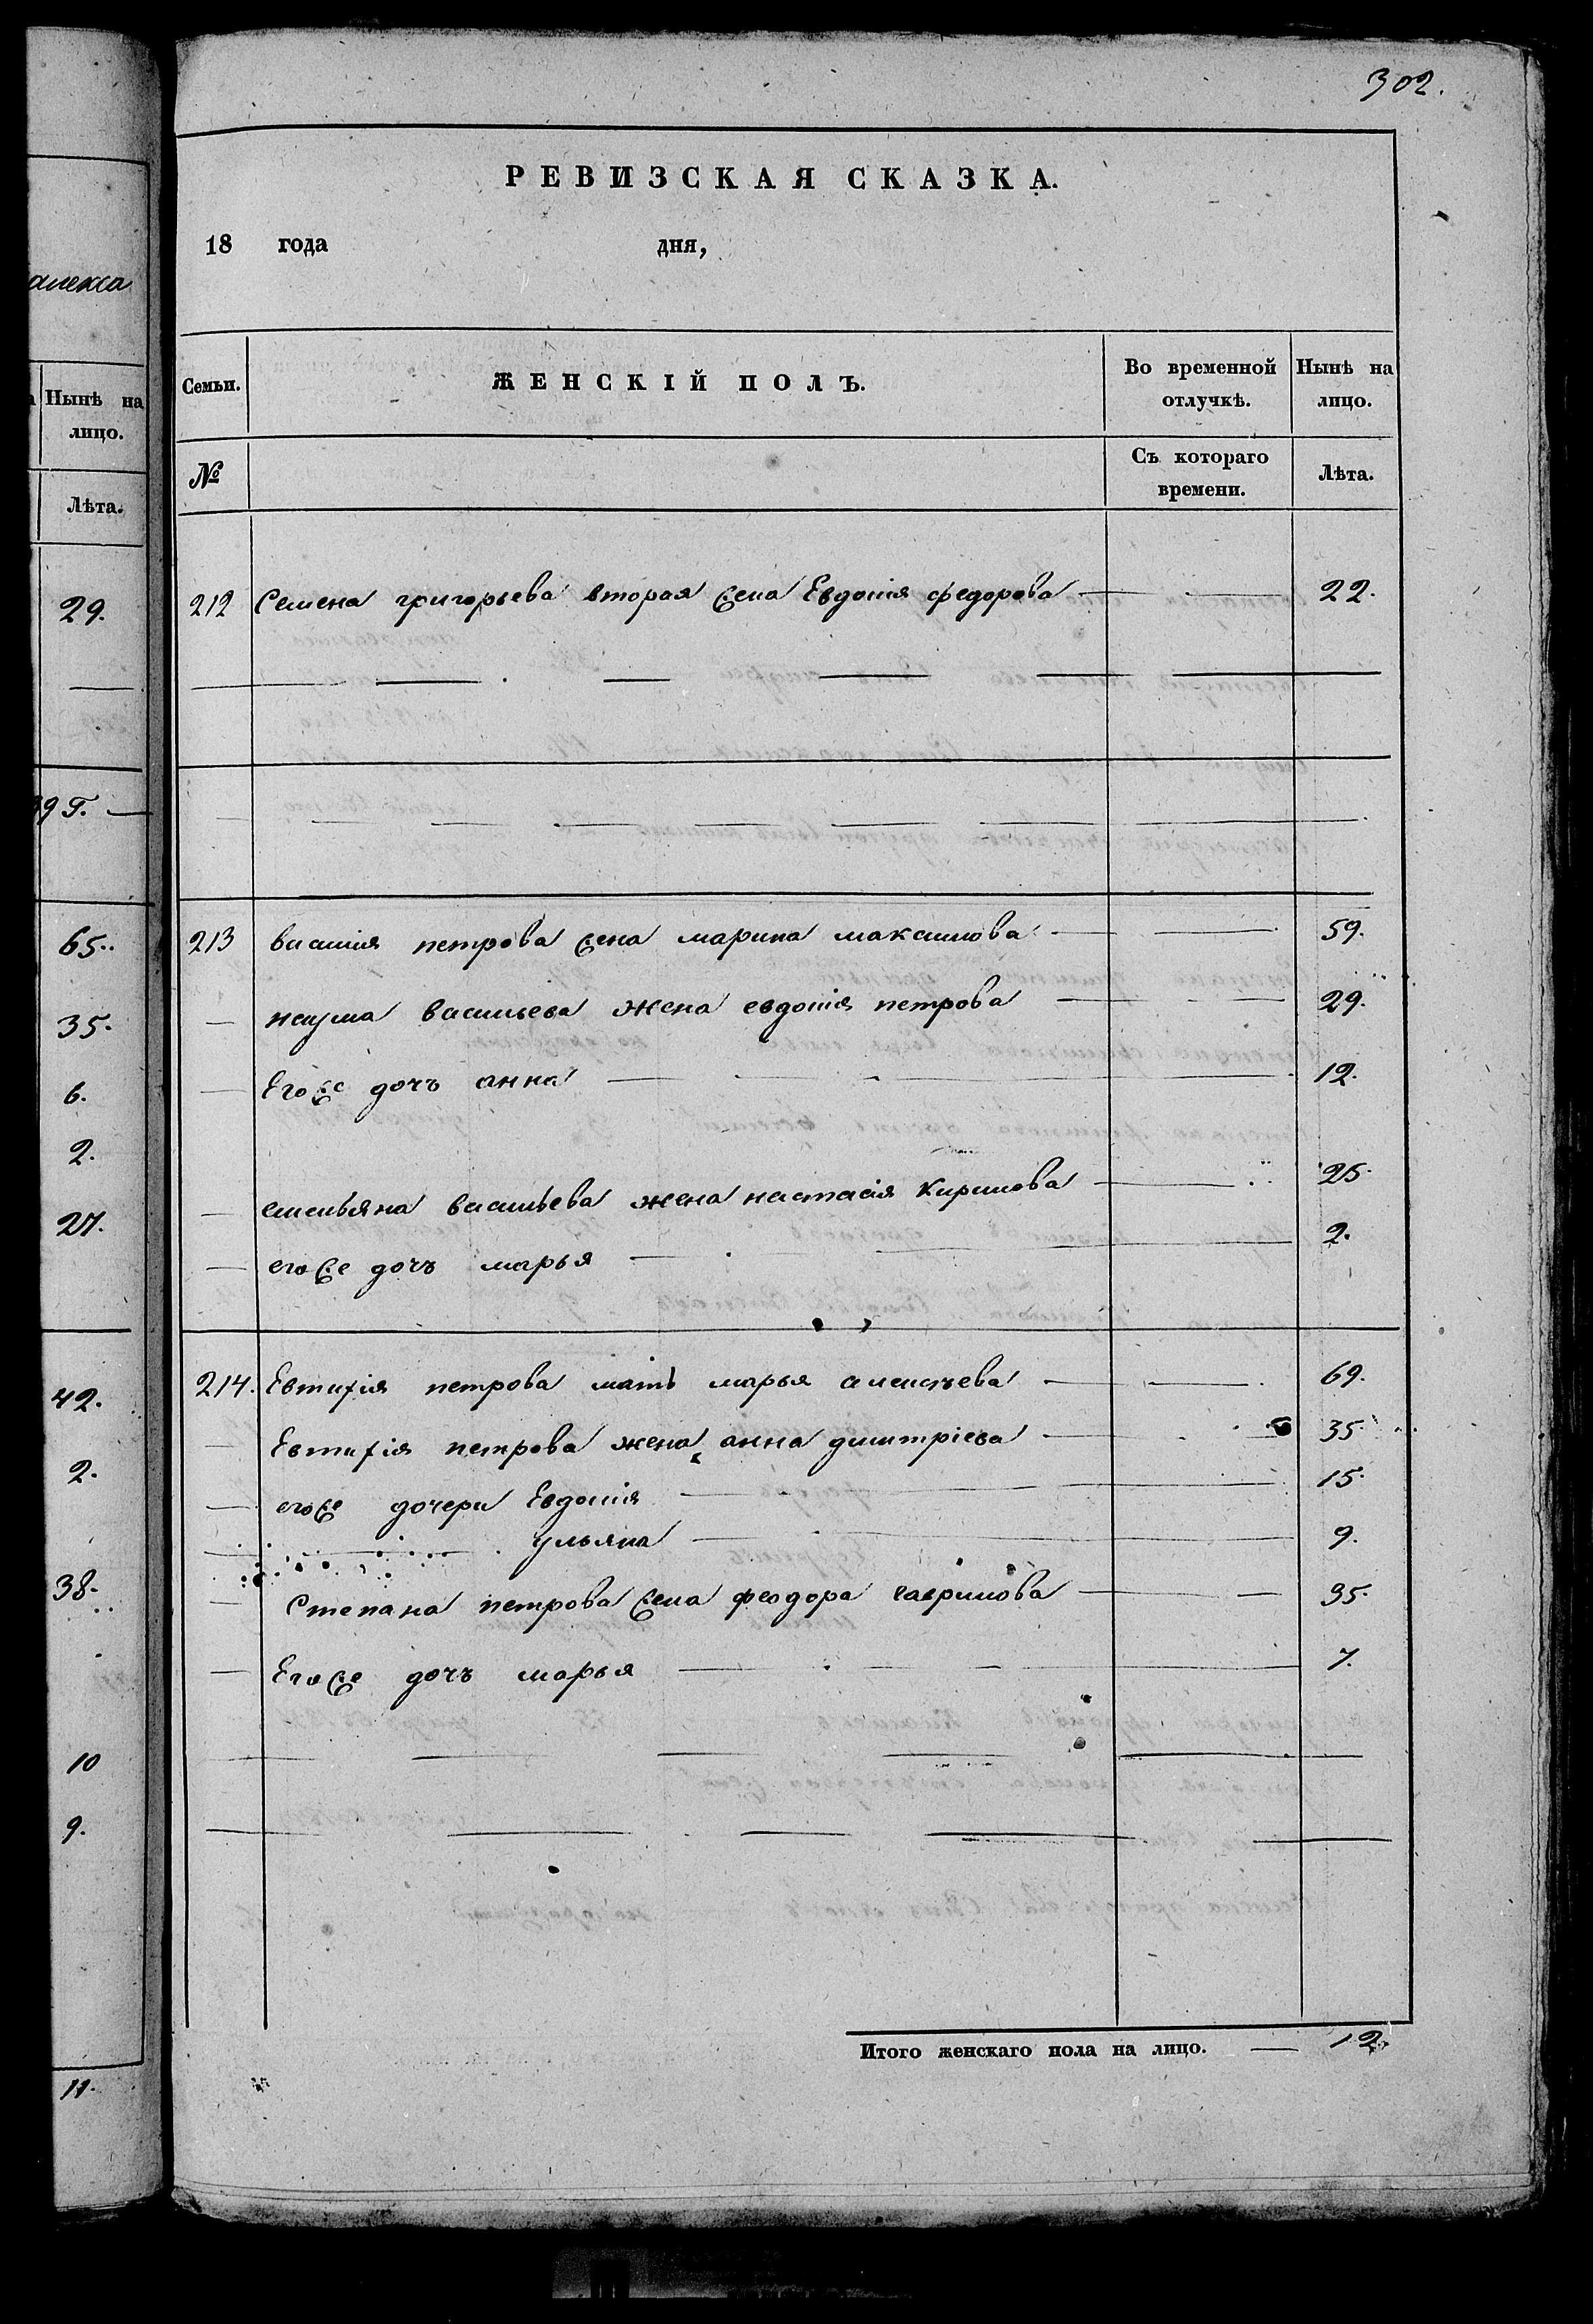 алекса
Нынѣ на
лицо.
Лѣта.
29.
39 г.
65.
35.
6.
2.
27.
42.
2.
38.
10
9.
11.
302.
РЕВИЗСКАЯ СКАЗКА.
18 года дня,
Семьи. ЖЕНСКІЙ ПОЛЪ. Во временной отлучкѣ. Нынѣ на лицо.
№ Съ котораго времени. Лѣта.
212 Семена григорьева вторая жена Евдокія федорова 22.
213 василия петрова жена марина максимова 59.
наума васильева жена евдокія петрова 29.
Егоже дочь анна 12.
емельяна васильева жена настасія Кирилова 25.
егоже дочь марья 2.
214. Евтихія петрова мать марья алексѣева 69.
Евтихія петрова жена анна димитріева 35.
егоже дочери Евдокія 15.
ульяна 9.
Степана петрова жена феодора гаврилова 35.
Егоже дочь марья 7.
Итого женскаго пола на лицо. 12.